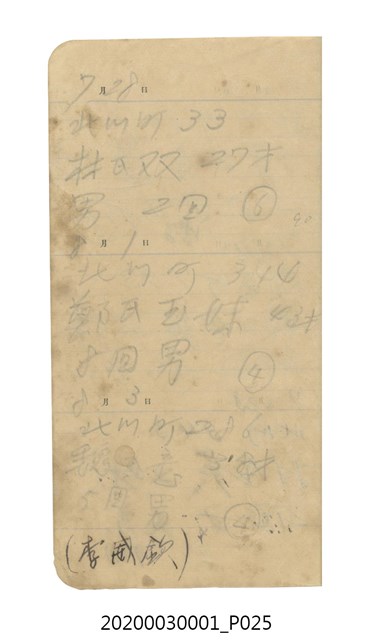 7月28日
北川町 33
林氏双 27才
男 2回 ⑥
8月1日
北川町 344
鄭氏玉妹 43才
8回男 ④
8月3日
北川町
5回男 ④
(李威欽)
20200030001_P025